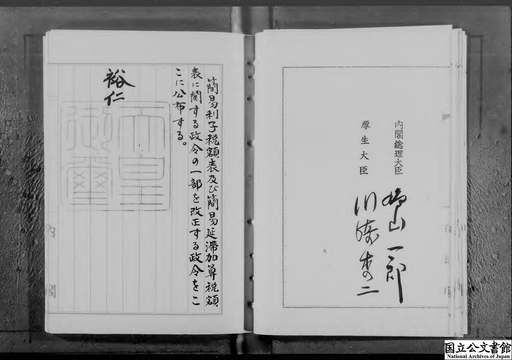 内閣総理大臣 鳩山一郎
厚生大臣 川崎秀二
簡易利子税額表及び簡易延滞加算税額
表に関する政令の一部を改正する政令をこ
こに公布する。
裕仁
天皇
御璽
国立公文書館
National Archives of Japan